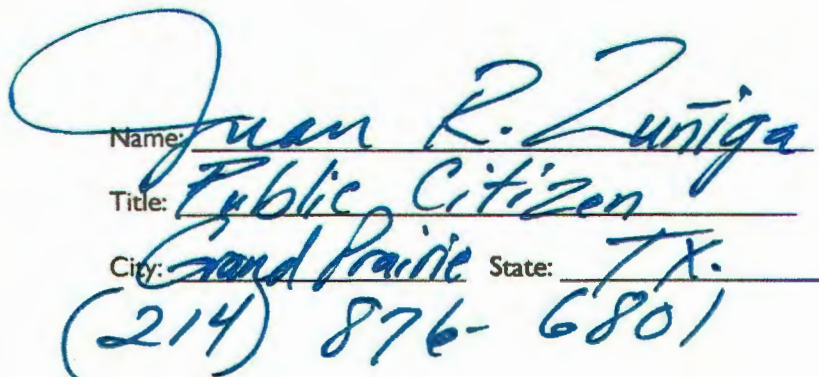 Name: Juan R. Zuñiga
Title: Public Citizen
City: Grand Prairie State: TX.
(214) 876-6801